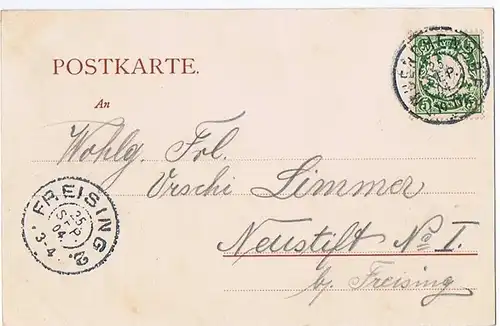 POSTKARTE.
An
Wohlg. Frl.
Urschi Limmer
Neustift No I.
by. Freising
FREISING 2
25
SEP.
04
3-4.
25
SEP.